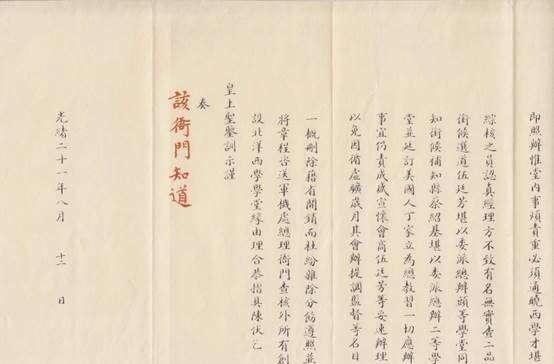 即照辦惟堂內事煩責重必須通曉西學才堪
綜核之員認真經理方不致有名無實查二品
銜候選道伍廷芳堪以委派總辦頭等學堂同
知銜候補知縣蔡紹基堪以委派總辦二等學
堂並延訂美國人丁家立為總教習一切應辦
事宜仍責成盛宣懷會商伍廷芳等妥速辦理
以免因循虛曠歲月其會辦提調監督等名目
一概刪除藉省開銷而杜紛雜除分飭遵照並
將章程咨送軍機處總理衙門查核外所有創
設北洋西學學堂緣由理合恭摺具陳伏乞
皇上聖鑒訓示謹
奏
該衙門知道
光緒二十一年八月 十二 日